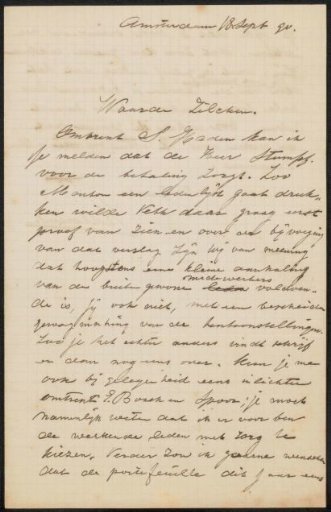 Amsterdam 18 Sept. 90.
Waarde Zilcken.
Omtrent S. Haden kan ik
je melden dat de Heer Stumpf
voor de betaling zorgt. Zoo
Mouton een ledenlijst gaat druk-
ken wilde Veth daar graag eerst
proef van zien en over de bijvoeging
van dat verslag zijn wij van meening
dat hoogstens eene kleine aanhaling
van de buitengewone leden medewerkers voldoen-
de is, jij ook niet, met een bescheiden
gewagmaking van de tentoonstellingen.
Zoo je het echter anders vindt schrijf
er dan nog eens over. Kun je me
ook bij gelegenheid eens inlichten
omtrent E. Bosch en Spoor: je moet
namelijk weten dat ik er voor ben
de werkende leden met zorg te
kiezen. Verder zou ik gaarne wenschen
dat de portefeuille dit jaar eens